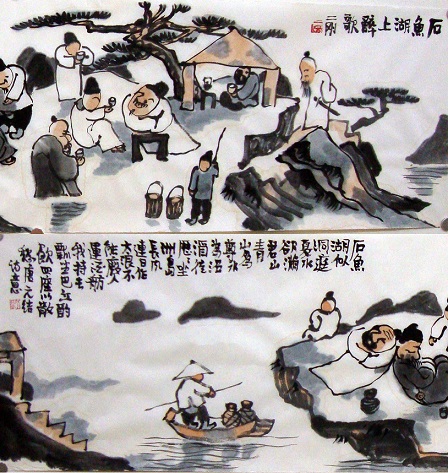 石魚湖上醉歌
石魚
湖似
洞庭
夏水
欲满
君山
青
山為
尊水
為沼
酒徒
歷坐
州島
長风
連日作
大浪不
能廢人
運酒舫
我持長
瓢坐巴丘酌
飲四座以散
愁唐元结
诗意